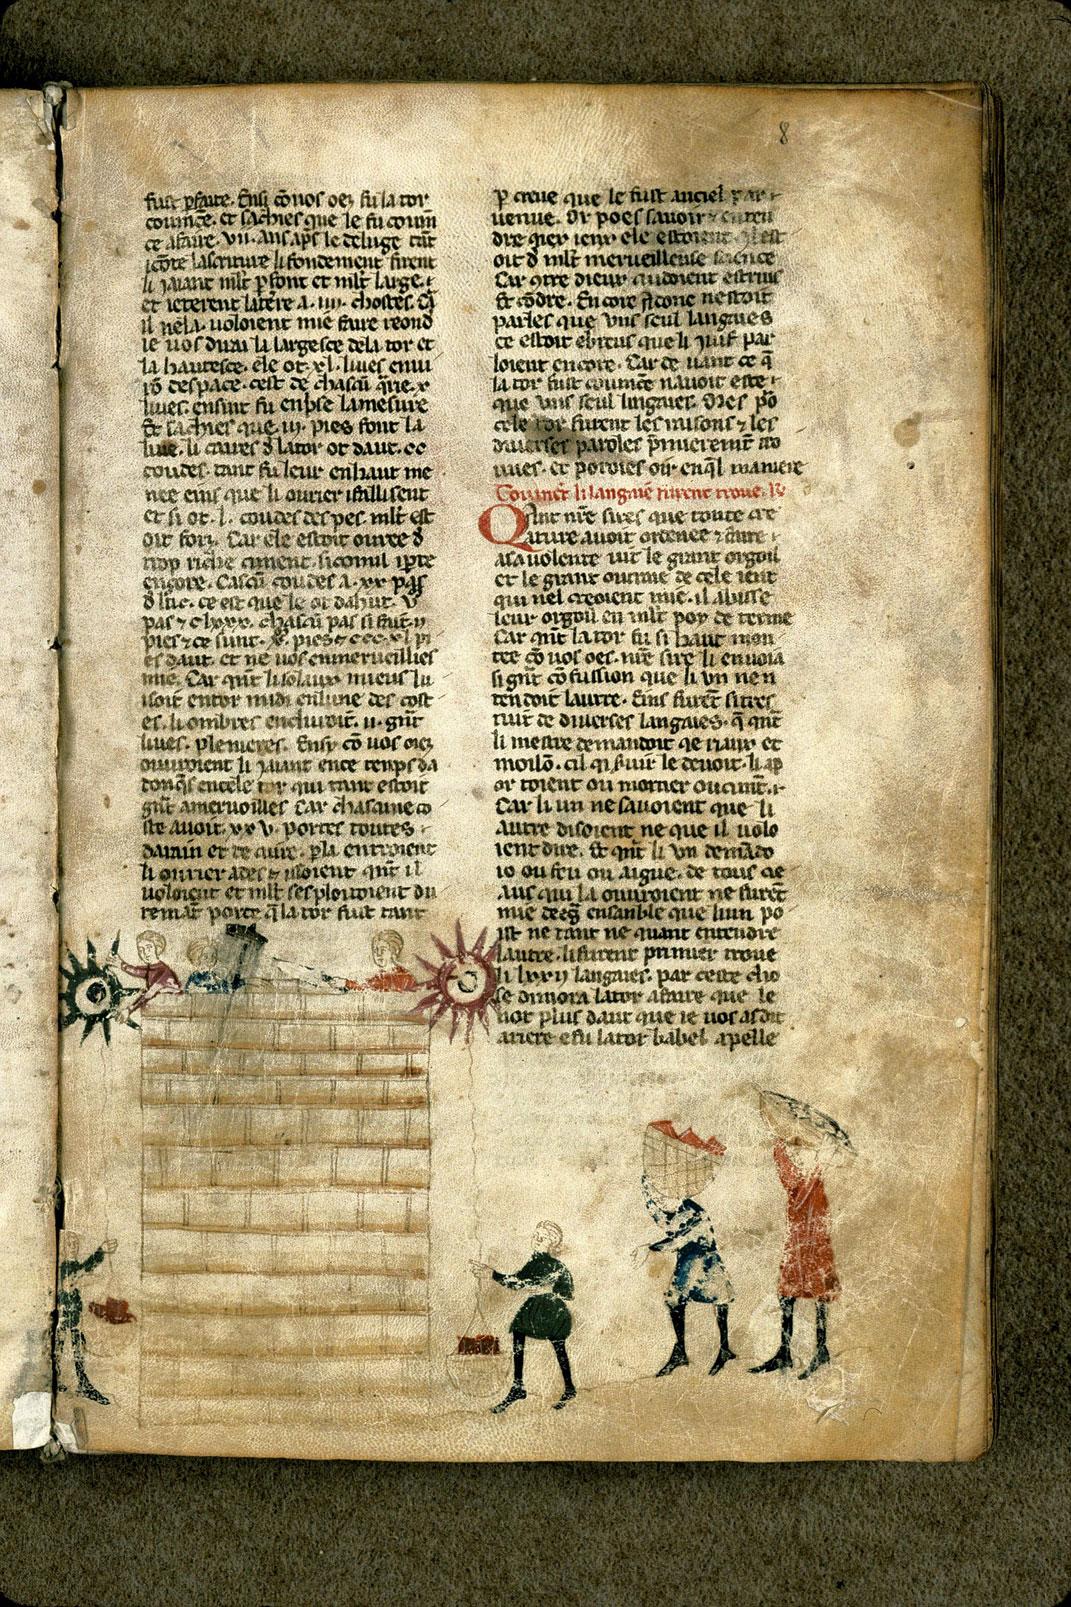 8
fust p̱faite. Ensi cō vos oez fu la tor
coumēce. et sachies que le fu coum̄
ce a faire. vii. ans ap̄s le deluge
la scriture li fondement firent
li jaiant ml̄t p̱font et ml̄t large. ⁊
et ieterent la t̄re a .iiii. chostes. Q̄
il ne la. voloient mie faire reond
ie vos dirai la largesce de la tor et
la hautesce. ele ot .xl. liues enui
rō despace. cest de chascū .x.
liues. ensint fu enp̄se la mesure
Et sachies que .iii. pies font la
liue. li de la tor ot daut. cc
coudes. tant fu leur enhaut me
nee eins que li ourier fallissent
et si ot .l. coudes des pes. ml̄t est
oit forz. Car ele estoit ouree d̄
trop riche ciment. si com il
encore. Cascū coudes a .xv.
ce est que le ot
pas chascū pas si fait .ii.
pies ⁊ ce sunt. pies ⁊
es daut. et ne vos enmerueillies
mie. Car qn̄t li solaux mieus lu
isoit entor midi en lune des cost
es. li ombres .ii. gn̄t
liues. plenieres. Ensy cō vos oiez
ouuroient li jaiant en ce temps da
donq̄s en cele tor qui tant estoit
gn̄t a meruoilles Car chascune co
ste auoit. xxv. portes toutes.
darain et de cuiure. p̱ la entroient
li ourier ades ⁊ issoient qn̄t il
voloient et ml̄t sesploitoient du
remāt porce q̄ la tor fust tant
p̱ creue que le fust au ciel par
uenue. Or poes sauoir ⁊ enten
dre qier ienz ele estoient
oit d̄ ml̄t merveilleuse science
Car 9tre dieux cuidoient estriuer
Et cōdre. Encore adonc nestoit
parles que vns seul langages
ce estoit ebreus que li juif par
loient encore. Car deuant ce q̄
la tor fust coumēce nauoit este ⁊
que vns seul lingages. Mes p̱o
cele tor furent les raisons ⁊ les
diuerses paroles p̄mieremt̄ tro
uues. et poroies oir en q̄l maniere
Coumēt li langaie furent troue.
Qant nr̄e sires que toute cre
ature auoit ordenee ⁊ faite ⁊
a sa volente vit le grant orgoil
et le grant outrage de cele ient
qui nel creoient mie. il abaisse
leur orgoil en ml̄t poy de terme
Car qn̄t la tor fu si haut mon
tee cō vos oes. nr̄e sire li enuoia
si gn̄t cōfussion que li vn nen
tendoit lautre. Eins furēt si tres
tuit de diuerses langaies. q̄ qn̄t
li mestre demandoit q̄ ne et
moilō. cil q̄ le deuoit. li ap
or toient ou mortier ou cimēt. ⁊
Car li un ne sauoient que li
autre disoient ne que il volo
ient dire. Et qn̄t li vn demādo
io ou feu ou aigue. de tous ce
aus qui la ouuroient ne furēt
mie ensanble que liun po
ist ne tant ne quant entendre
lautre. li furent primier troue
li lxxii langaies. par ceste cho
se dimora la tor a faire que le
not plus daut que ie vos as dit
ariere e fu la tor babel apelle